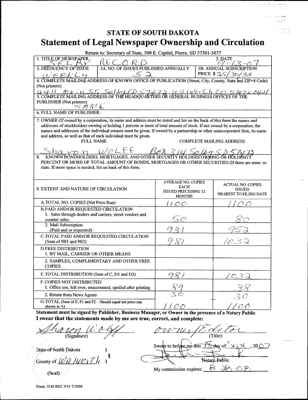 STATE OF SOUTH DAKOTA
Statement of Legal Newspaper Ownership and Circulation
Return to: Secretary of State, 500 E. Capitol, Pierre, SD 57501-5077
1. TITLE OF NEWSPAPER
SELBY RECORD
2. DATE
3. FREQUENCY OF ISSUE
WEEKLY
3A. NO. OF ISSUES PUBLISHED ANNUALLY
52
3B. ANNUAL SUBSCRIPTION
PRICE $
4. COMPLETE MAILING ADDRESS OF KNOWN OFFICE OF PUBLICATION (Street, City, County, State and ZIP+4 Code)
(Not printers)
5. COMPLETE MAILING ADDRESS OF THE HEADQUARTERS OR GENERAL BUSINESS OFFICES OF THE
PUBLISHER (Not printers)
SAME
6. FULL NAME OF PUBLISHER:
7. OWNER (If owned by a corporation, its name and address must be stated and list on the back of this form the names and
addresses of stockholders owning or holding 1 percent or more of total amount of stock. If not owned by a corporation, the
names and addresses of the individual owners must be given. If owned by a partnership or other unincorporated firm, its name
and address, as well as that of each individual must be given.
FULL NAME
COMPLETE MAILING ADDRESS
Sharon Wolff
8. KNOWN BONDHOLDERS, MORTGAGES, AND OTHER SECURITY HOLDERS OWNING OR HOLDING 1
PERCENT OR MORE OF TOTAL AMOUNT OF BONDS, MORTGAGES OR OTHER SECURITIES (If there are none, so
state. If more space is needed, list on back of this form.
9. EXTENT AND NATURE OF CIRCULATION
AVERAGE NO. COPIES
EACH
ISSUED PRECEDING 12
MONTHS
ACTUAL NO. COPIES
ISSUED
NEAREST TO FILING DATE
A. TOTAL NO. COPIES (Net Press Run)
1100
1100
B. PAID AND/OR REQUESTED CIRCULATION
1. Sales through dealers and carriers, street vendors and
counter sales.
50
80
2. Mail Subscription
(Paid and or requested)
931
952
C. TOTAL PAID AND/OR REQUESTED CIRCULATION
(Sum of 9B1 and 9B2)
981
1032
D. FREE DISTRIBUTION
1. BY MAIL, CARRIER OR OTHER MEANS
2. SAMPLES, COMPLIMENTARY AND OTHER FREE
COPIES
E. TOTAL DISTRIBUTION (Sum of C, D1 and D2)
981
1032
F. COPIES NOT DISTRIBUTED
1. Office use, left over, unaccounted, spoiled after printing
89
38
2. Return from News Agents
30
30
G. TOTAL (Sum of E, F1 and F2 - Should equal net press run
shown in A)
1100
1100
Statement must be signed by Publisher, Business Manager, or Owner in the presence of a Notary Public
I swear that the statements made by me are true, correct, and complete:
Sharon Wolff
(Signature)
Owner/Editor
(Title)
State of South Dakota )
County of WALWORTH )
(Seal)
Sworn to before me this
Notary Public
My commission expires:
Form: SOS REC 051 7/2004